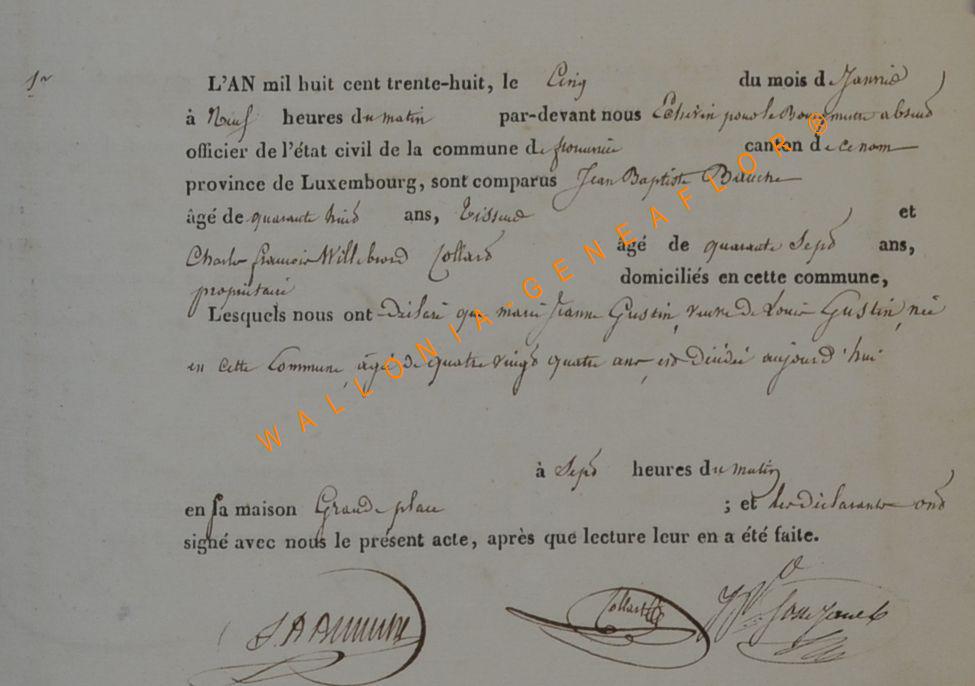 1er
L'AN mil huit cent trente-huit, le Cinq du mois de Janvier
à Neuf heures du matin par-devant nous Echevin pour le Bourgmestre absent
officier de l'état civil de la commune de canton de ce nom
province de Luxembourg, sont comparus Jean Baptiste
âgé de quarante huit ans, Tisserand et
Charles françois Willebrord Collard âgé de quarante Sept ans,
propriétaire domiciliés en cette commune,
Lesquels nous ont déclaré que marie Jeanne Gustin, veuve de Louis Gustin, née
en cette Commune, âgée de quatre vingt quatre ans, est décédée aujourd'hui
à Sept heures du matin
en sa maison Grande place ; et les déclarants ont
signé avec nous le présent acte, après que lecture leur en a été faite.
Collard
WALLONIA-GENEAFLOR ®